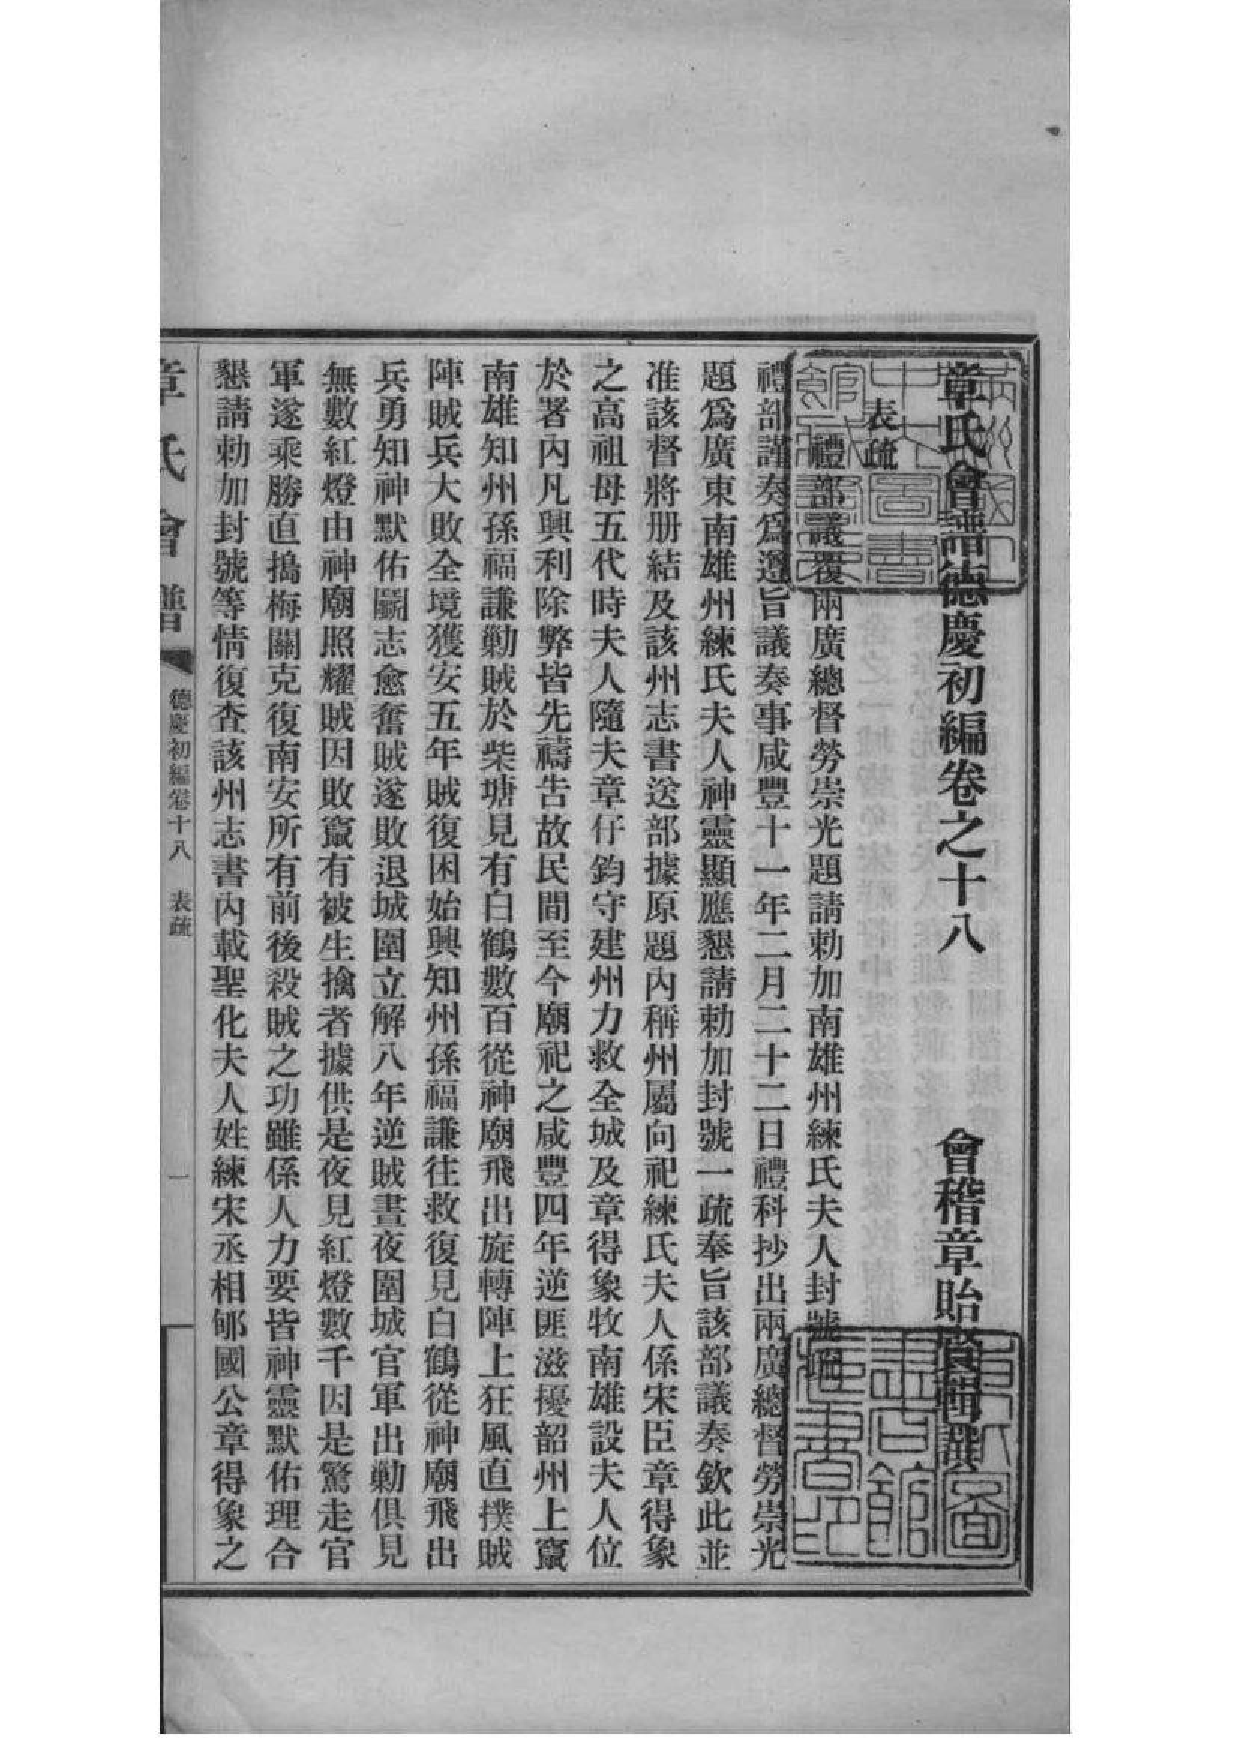 章氏會譜德慶初編卷之十八 會稽章貽賢輯譔
表疏
禮部議覆兩廣總督勞崇光題請勅加南雄州練氏夫人封號疏
禮部謹奏爲遵旨議奏事咸豐十一年二月二十二日禮科抄出兩廣總督勞崇光
題爲廣東南雄州練氏夫人神靈顯應懇請勅加封號一疏奉旨該部議奏欽此並
准該督將册結及該州志書送部據原題內稱州屬向祀練氏夫人係宋臣章得象
之高祖母五代時夫人隨夫章仔鈞守建州力救全城及章得象牧南雄設夫人位
於署內凡興利除弊皆先禱告故民間至今廟祀之咸豐四年逆匪滋擾韶州上竄
南雄知州孫福謙勦賊於柴塘見有白鶴數百從神廟飛出旋轉陣上狂風直撲賊
陣賊兵大敗全境獲安五年賊復困始興知州孫福謙往救復見白鶴從神廟飛出
兵勇知神默佑鬭志愈奮賊遂敗退城圍立解八年逆賊晝夜圍城官軍出勦俱見
無數紅燈由神廟照耀賊因敗竄有被生擒者據供是夜見紅燈數千因是驚走官
軍遂乘勝直搗梅關克復南安所有前後殺賊之功雖係人力要皆神靈默佑理合
懇請勅加封號等情復查該州志書內載聖化夫人姓練宋丞相郇國公章得象之
章氏會譜 德慶初編卷十八 表疏 一